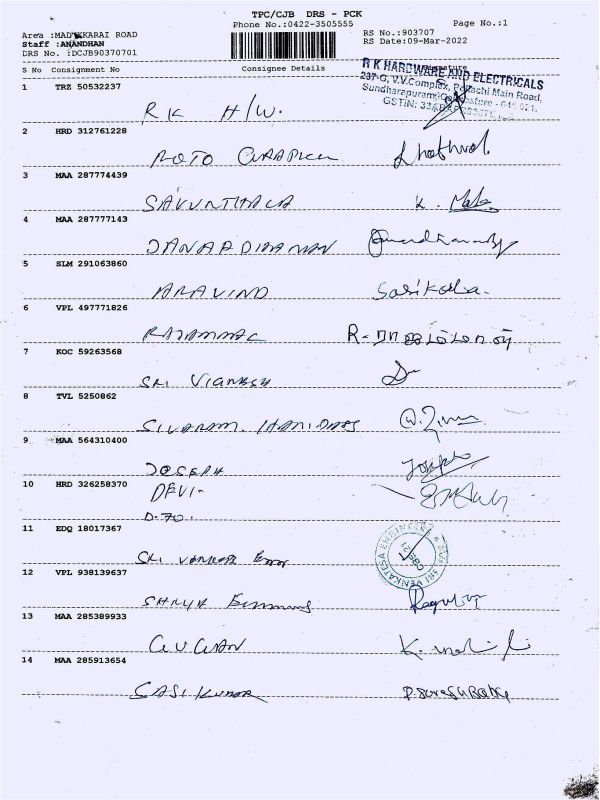 TPC/CJB DRS - PCK
Phone No.:0422-3505555
Page No.:1
Area :MADUKKARAI ROAD
Staff :ANANDHAN
DRS No. :DCJB90370701
RS No.:903707
RS Date:09-Mar-2022
S No Consignment No Consignee Details
R K HARDWARE AND ELECTRICALS
237-G, V.V.Complex, Pollachi Main Road,
Sundharapuram, Coimbatore - 641 021.
GSTIN:
1 TRZ 50532237
RK H/W.
2 HRD 312761228
3 MAA 287774439
SAKUNTHALA
4 MAA 287777143
JANARDHANAN
5 SLM 291063860
ARAVIND
Sasikala.
6 VPL 497771826
RAJAMMAL
R- ராஜம்மாள்
7 KOC 59263568
SRI VIGNESH
8 TVL 5250862
SIVARAM.
9 MAA 564310400
JOSEPH
Joseph
10 HRD 326258370
DEVI-
D-70.
11 EDQ 18017367
SRI VENKATESA ENGINEERS
12 VPL 938139637
13 MAA 285389933
GUGAN
14 MAA 285913654
SASI KUMAR
P.SureshBabu